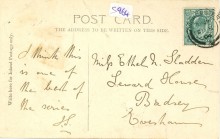 5964
POST CARD.
THE ADDRESS TO BE WRITTEN ON THIS SIDE
I think this
is one of
the best of
the series
Miss Ethel N. Sladden
Seward House
Badsey
Evesham